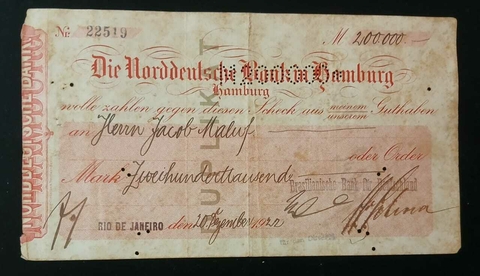 № 22519
M 200.000—
Die Norddeutsche Bank in Hamburg
Hamburg
wolle zahlen gegen diesen Scheck aus meinem Guthaben
unserem
an Herrn Jacob Maluf
oder Order
Mark Zweihunderttausend
Brasilianische Bank für Deutschland
RIO DE JANEIRO den 20 Dezember 1922
DUPLIKAT
NORDDEUTSCHE BANK